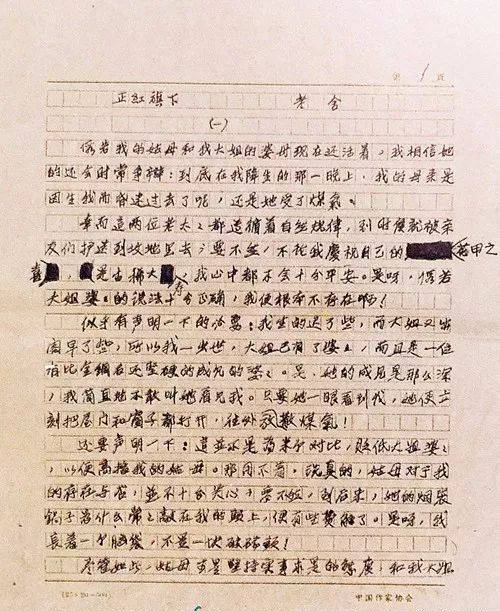 第 1 页
正红旗下 老舍
(一)
假若我的姑母和我大姐的婆母现在还活着，我相信她
们还会时常争辩：到底在我降生的那一晚上，我的母亲是
因生我而昏迷过去了呢，还是她受了煤气。
幸而这两位老太太都遵循着自然规律，到时候就被亲
友们护送到坟地里去；要不然，不论我庆祝自己的花甲之
喜，还是古稀大寿，我心中都不会十分平安。是呀，假若
大姐婆婆的说法十分正确，我便根本不存在啊！
似乎有声明一下的必要：我生的迟了些，而大姐又出
阁早了些，所以我一出世，大姐已有了婆婆，而且是一位
有比金钢石还坚硬的成见的婆婆。是，她的成见是那么深，
我简直地不敢叫她看见我。只要她一眼看到我，她便立
刻把屋门和窗子都打开，往外散放煤气！
还要声明一下：这并不是为来个对比，贬低大姐婆婆
，以便高抬我的姑母。那用不着。说真的，姑母对于我
的存在与否，并不十分关心；要不然，到后来，她的烟袋
锅子为什么常常敲在我的头上，便有些费解了。是呀，我
长着一个脑袋，不是一块破砖头！
尽管如此，姑母可是坚持实事求是的态度，和我大姐
(20×20=400)
中国作家协会